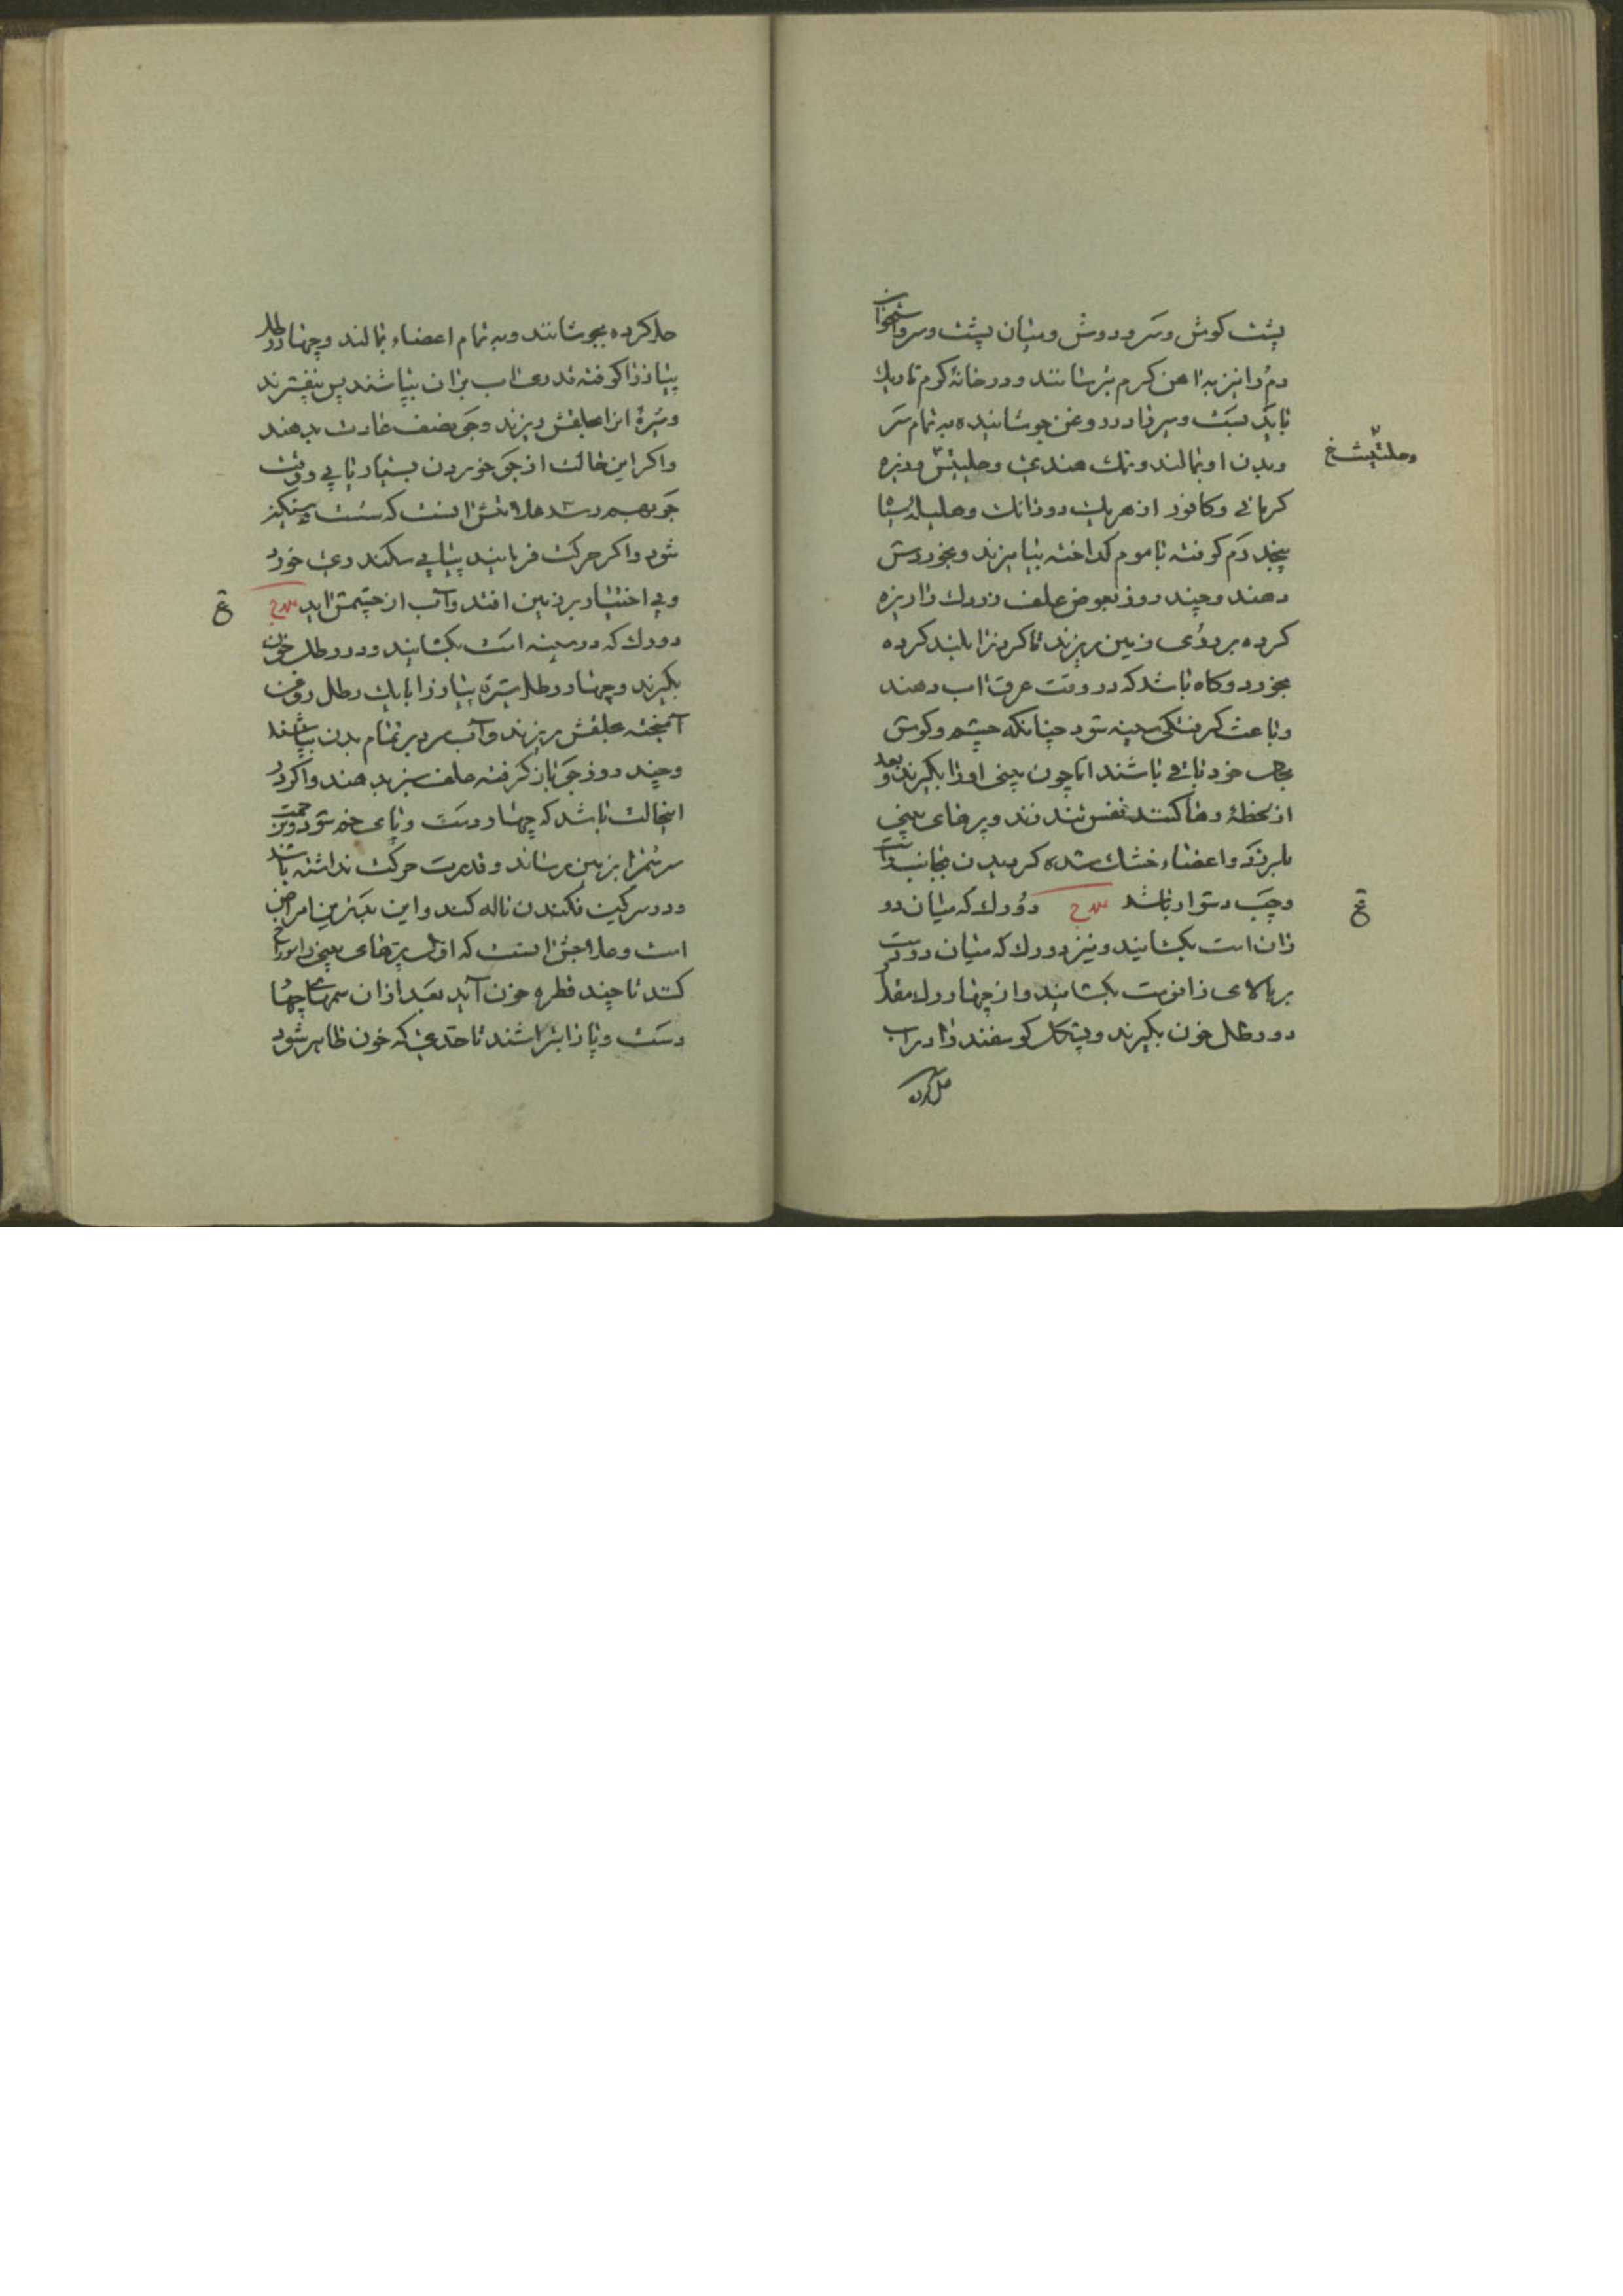 پشت کوش و سر و دوش و میان پشت و سر و استخوان
دم را نیز به اهن کرم برسانند و در خانهٔ کرم تاریک
باید بست و سیر را در روغن جوشانیده به تمام سر
و بدن او بمالند و نمک هندی و حلیتیش و زیره
کرمانی و کافور از هریک دو دانک و هلیله
پنجدرم کوفته با موم کداخته بیامیزند و بخوردش
دهند و چند روز بعوض علف زردک را ریزه
کرده بر روی زمین ریزند تا کردنرا بلند کرده
بخورد و کاه باشد که در وقت عرق اب دهند
و باعث کرفتکی سینه شود چنانکه چشم و کوش
بحال خود باقی باشند اما چون بینی او را بکیرند و بعد
از لحظهٔ رها کنند نفس تند زند و پرهای بینی
بلرزد و اعضاء خشک شده کردیدن بجانب راست
و چپ دشوار باشد علاج دو رک که میان دو
ران است بکشایند و نیز دو رک که میان دو دست
بر بالای زانوست بکشایند و از چهار رک مقدار
دو رطل خون بکیرند و پشکل کوسفند را در اب
حل کرده
وحلتیث خ
ع
حل کرده بجوشانند و به تمام اعضاء بمالند و چهار رطل
پیاز را کوفته قدری اب بران بپاشند پس بیفشرند
و شیرهٔ انرا بحلقش ریزند و جو بنصف عادت بدهند
و اکر این حالت از جو خوردن بسیار یا بی وقت
جو بهم رسد علامتش انست که سست و سنکین
شود و اکر حرکت فرمایند پیاپی سکندری خورد
و بی اختیار بر زمین افتد و آب از چشمش اید علاج
دو رک که در سینه است بکشایند و دو رطل خون
بکیرند و چهار رطل شیرهٔ پیاز را با یک رطل روغن
آمیخته بحلقش ریزند و آب سرد بر تمام بدن بپاشند
و چند روز جو باز کرفته علف سبز بدهند و اکر در
اینحالت باشد که چهار دست و پای خم شود
سر سم را بزمین رساند و قدرت حرکت نداشته باشد
و در سرکین فکندن ناله کند و این بدترین امراض
است و علاجش انست که اول پرهای بینی را سوراخ
کنند تا چند قطره خون آید بعد ازان سمهای چهار
دست و پا را بتراشند تا حدی که خون ظاهر شود
ع